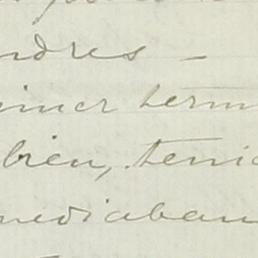 ndres –
imer term
bien, tenia
mediaban